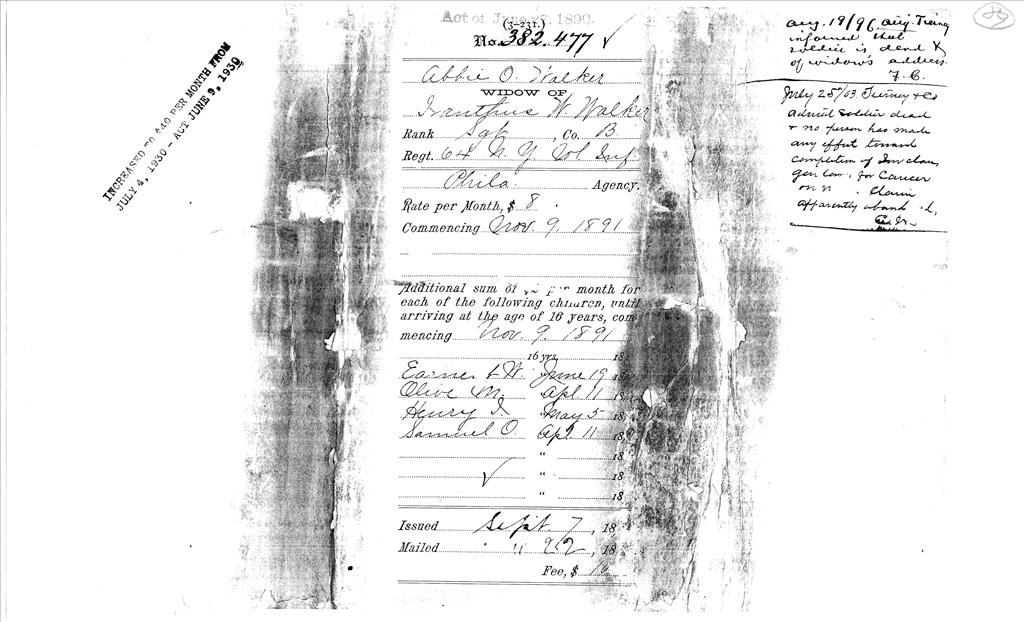 INCREASED TO $40 PER MONTH FROM
JULY 4, 1930 - ACT JUNE 9, 1930
Act of June 27, 1890.
(3-231.)
No. 382.477 ✓
Abbie O. Walker
WIDOW OF
W. Walker
Rank Sgt, Co. B
Regt. 64 N. Y. Vol Inf
Phila. Agency.
Rate per Month, $ 8.
Commencing Nov. 9 1891
Additional sum of per month for
each of the following children, until
arriving at the age of 16 years, com-
mencing Nov. 9. 1891
16 yrs. 18
Earnest W. June 19 18
Olive M. Apl. 11 18
Henry I. May 5 18
Samuel O Apl. 11 18
" 18
✓ " 18
" 18
Issued Sept. 7, 18
Mailed " 22, 18
Fee, $ 10
Aug. 19/96, Atty. Tierney
informed that
soldier is dead &
of widow's address.
F.C.
July 25/03 Tierney & Co
admit soldier dead
& no person has made
any effort toward
completion of Inv claim
gen law. for Cancer
on Claim
apparently aband